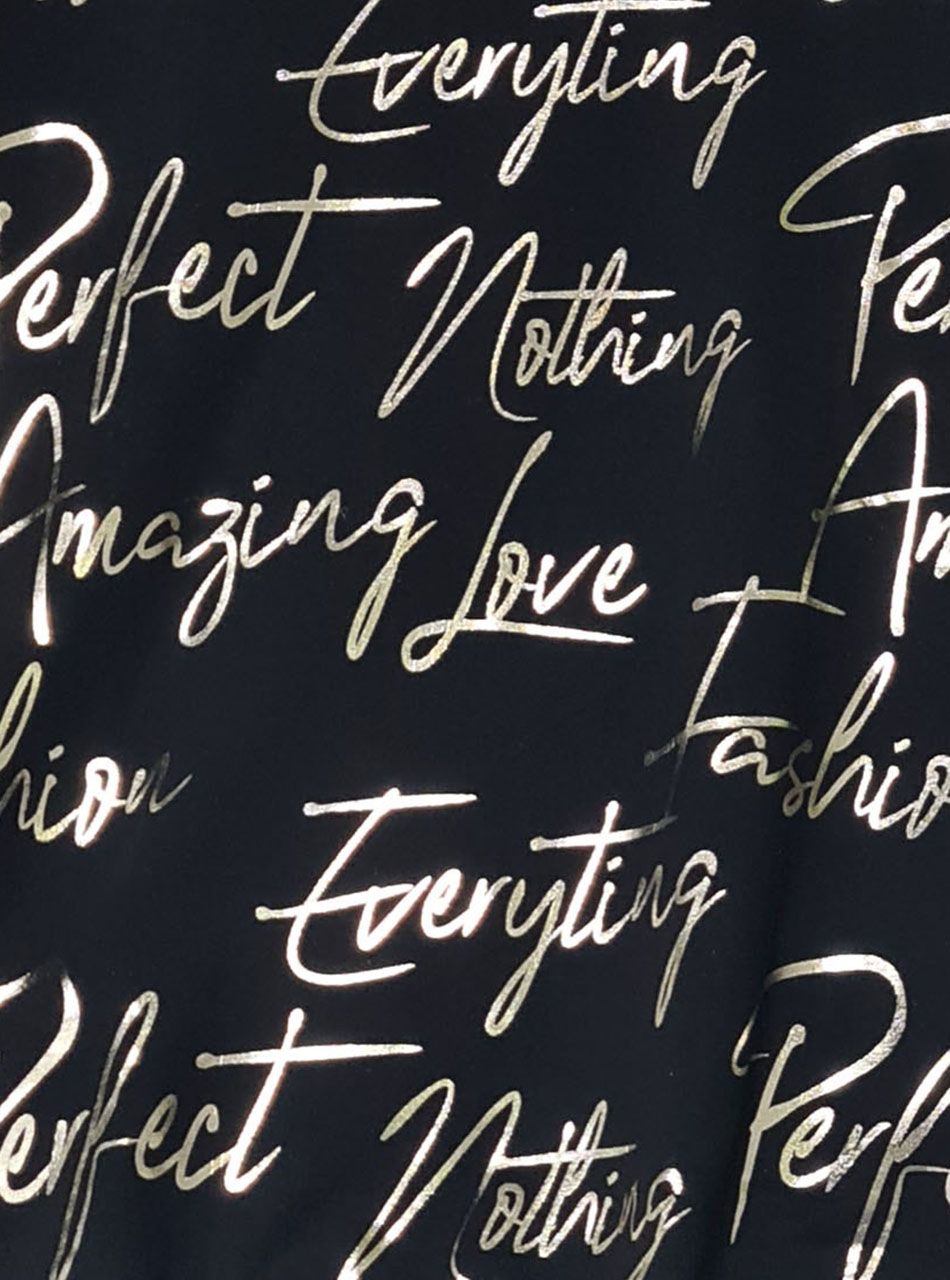 Everyting
Perfect Nothing Pe
Amazing Love Am
hion Fashio
Everyting
Perfect Nothing Perf